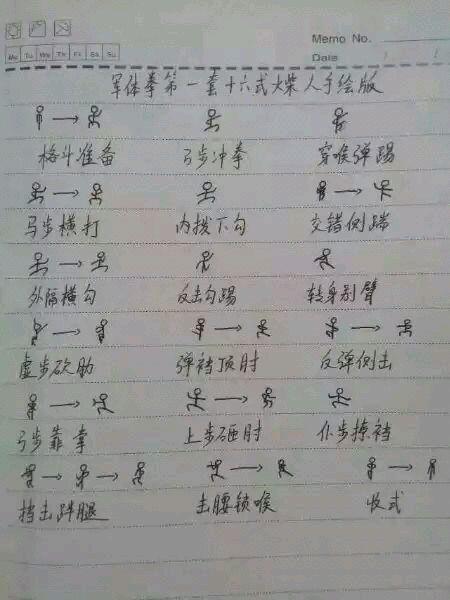 Memo No.
Mo Tu We Th Fr Sa Su
Date / /
军体拳第一套十六式火柴人手绘版
格斗准备 弓步冲拳 穿喉弹踢
马步横打 内拨下勾 交错侧踹
外隔横勾 反击勾踢 转身别臂
虚步砍肋 弹裆顶肘 反弹侧击
弓步靠掌 上步砸肘 仆步撩裆
挡击绊腿 击腰锁喉 收式